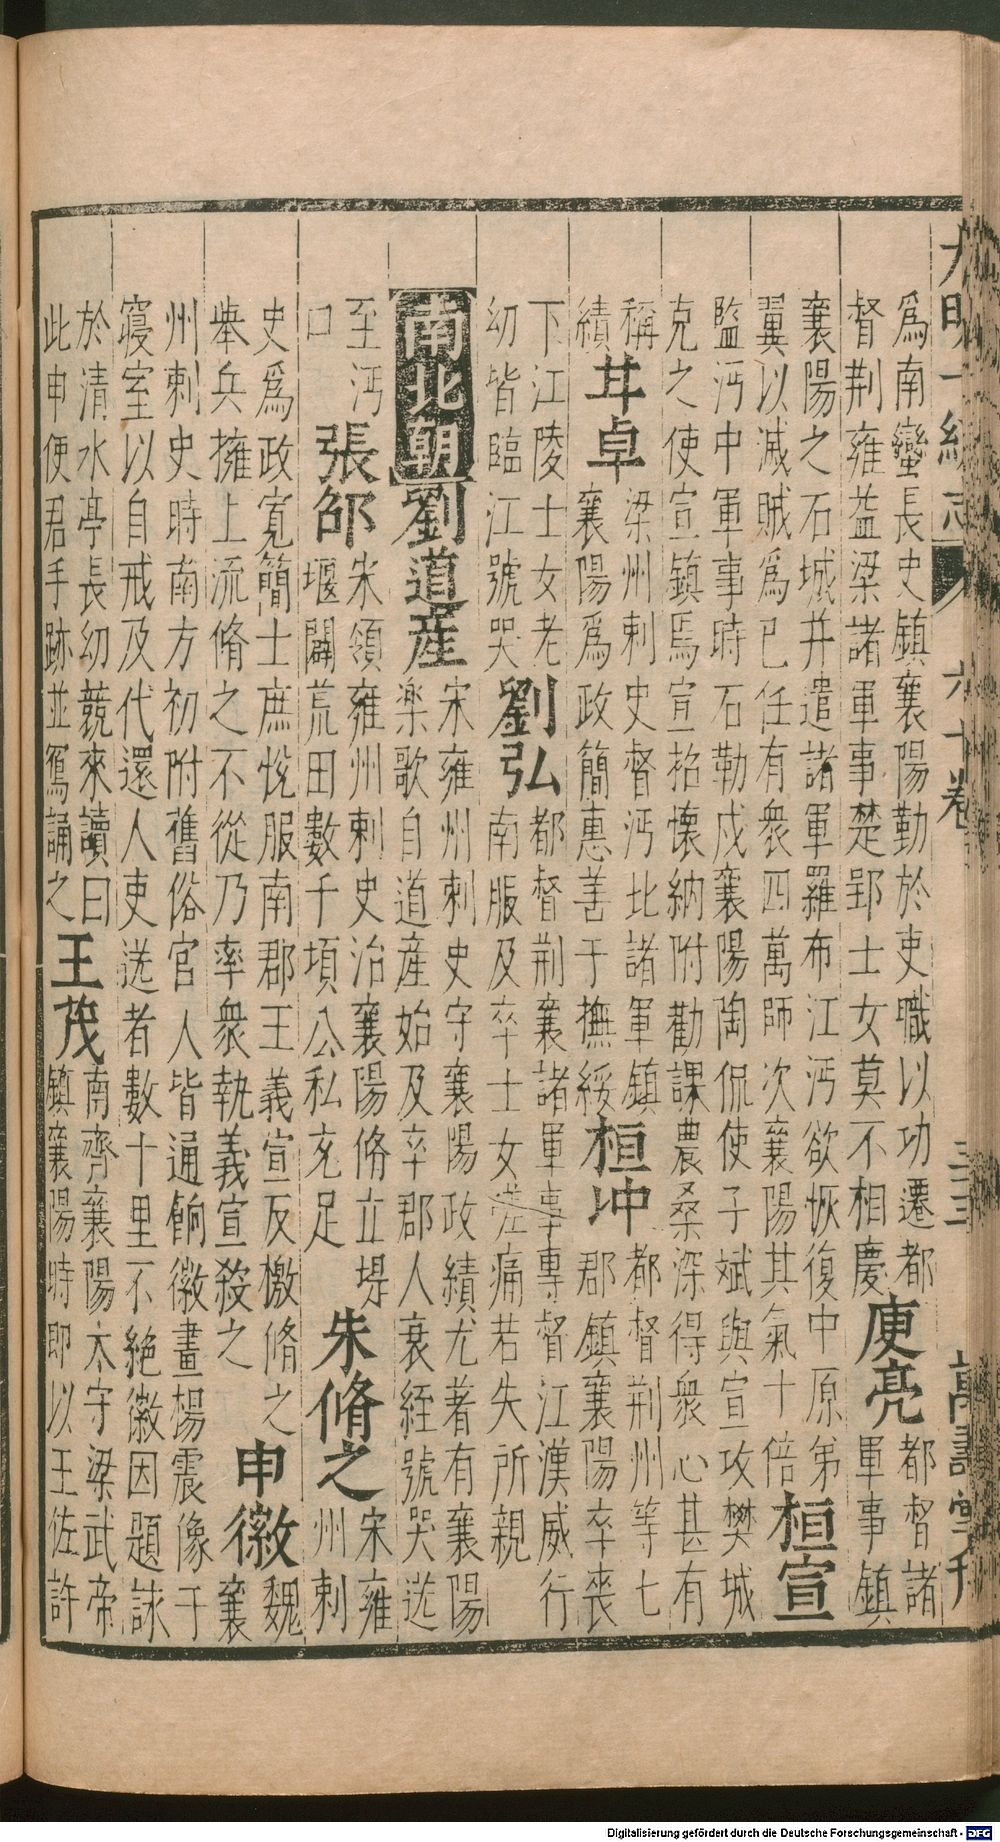 大明一統志 六十卷 三十三 萬壽堂刊
爲南蠻長史鎮襄陽勤於吏職以功遷都
督荆雍益梁諸軍事楚郢士女莫不相慶
庾亮
都督諸
軍事鎮
襄陽之石城并遣諸軍羅布江沔欲恢復中原第
翼以滅賊爲已任有衆四萬師次襄陽其氣十倍
桓宣
監沔中軍事時石勒戍襄陽陶侃使子斌與宣攻樊城
克之使宣鎮焉宣招懐納附勸課農桑深得衆心甚有
稱
績
甘卓
梁州刺史督沔北諸軍鎮
襄陽爲政簡惠善于撫綏
桓冲
都督荆州等七
郡鎮襄陽卒喪
下江陵士女老
幼皆臨江號哭
劉弘
都督荆襄諸軍事專督江漢威行
南服及卒士女嗟痛若失所親
南北朝
劉道産
宋雍州刺史守襄陽政績尤著有襄陽
楽歌自道産始及卒郡人衰絰號哭送
至沔
口
張邵
宋領雍州刺史治襄陽脩立堤
堰闢荒田數千頃公私充足
朱脩之
宋雍
州刺
史爲政寛簡士庶悅服南郡王義宣反檄脩之
舉兵擁上流脩之不從乃率衆執義宣殺之
申徽
魏
襄
州刺史時南方初附舊俗官人皆通餉徽畫楊震像于
寢室以自戒及代還人吏送者數十里不絶徽因題詠
於清水亭長幼競來讀曰
此申使君手跡並寫誦之
王茂
南齊襄陽太守梁武帝
鎮襄陽時即以王佐許
Digitalisierung gefördert durch die Deutsche Forschungsgemeinschaft - DFG